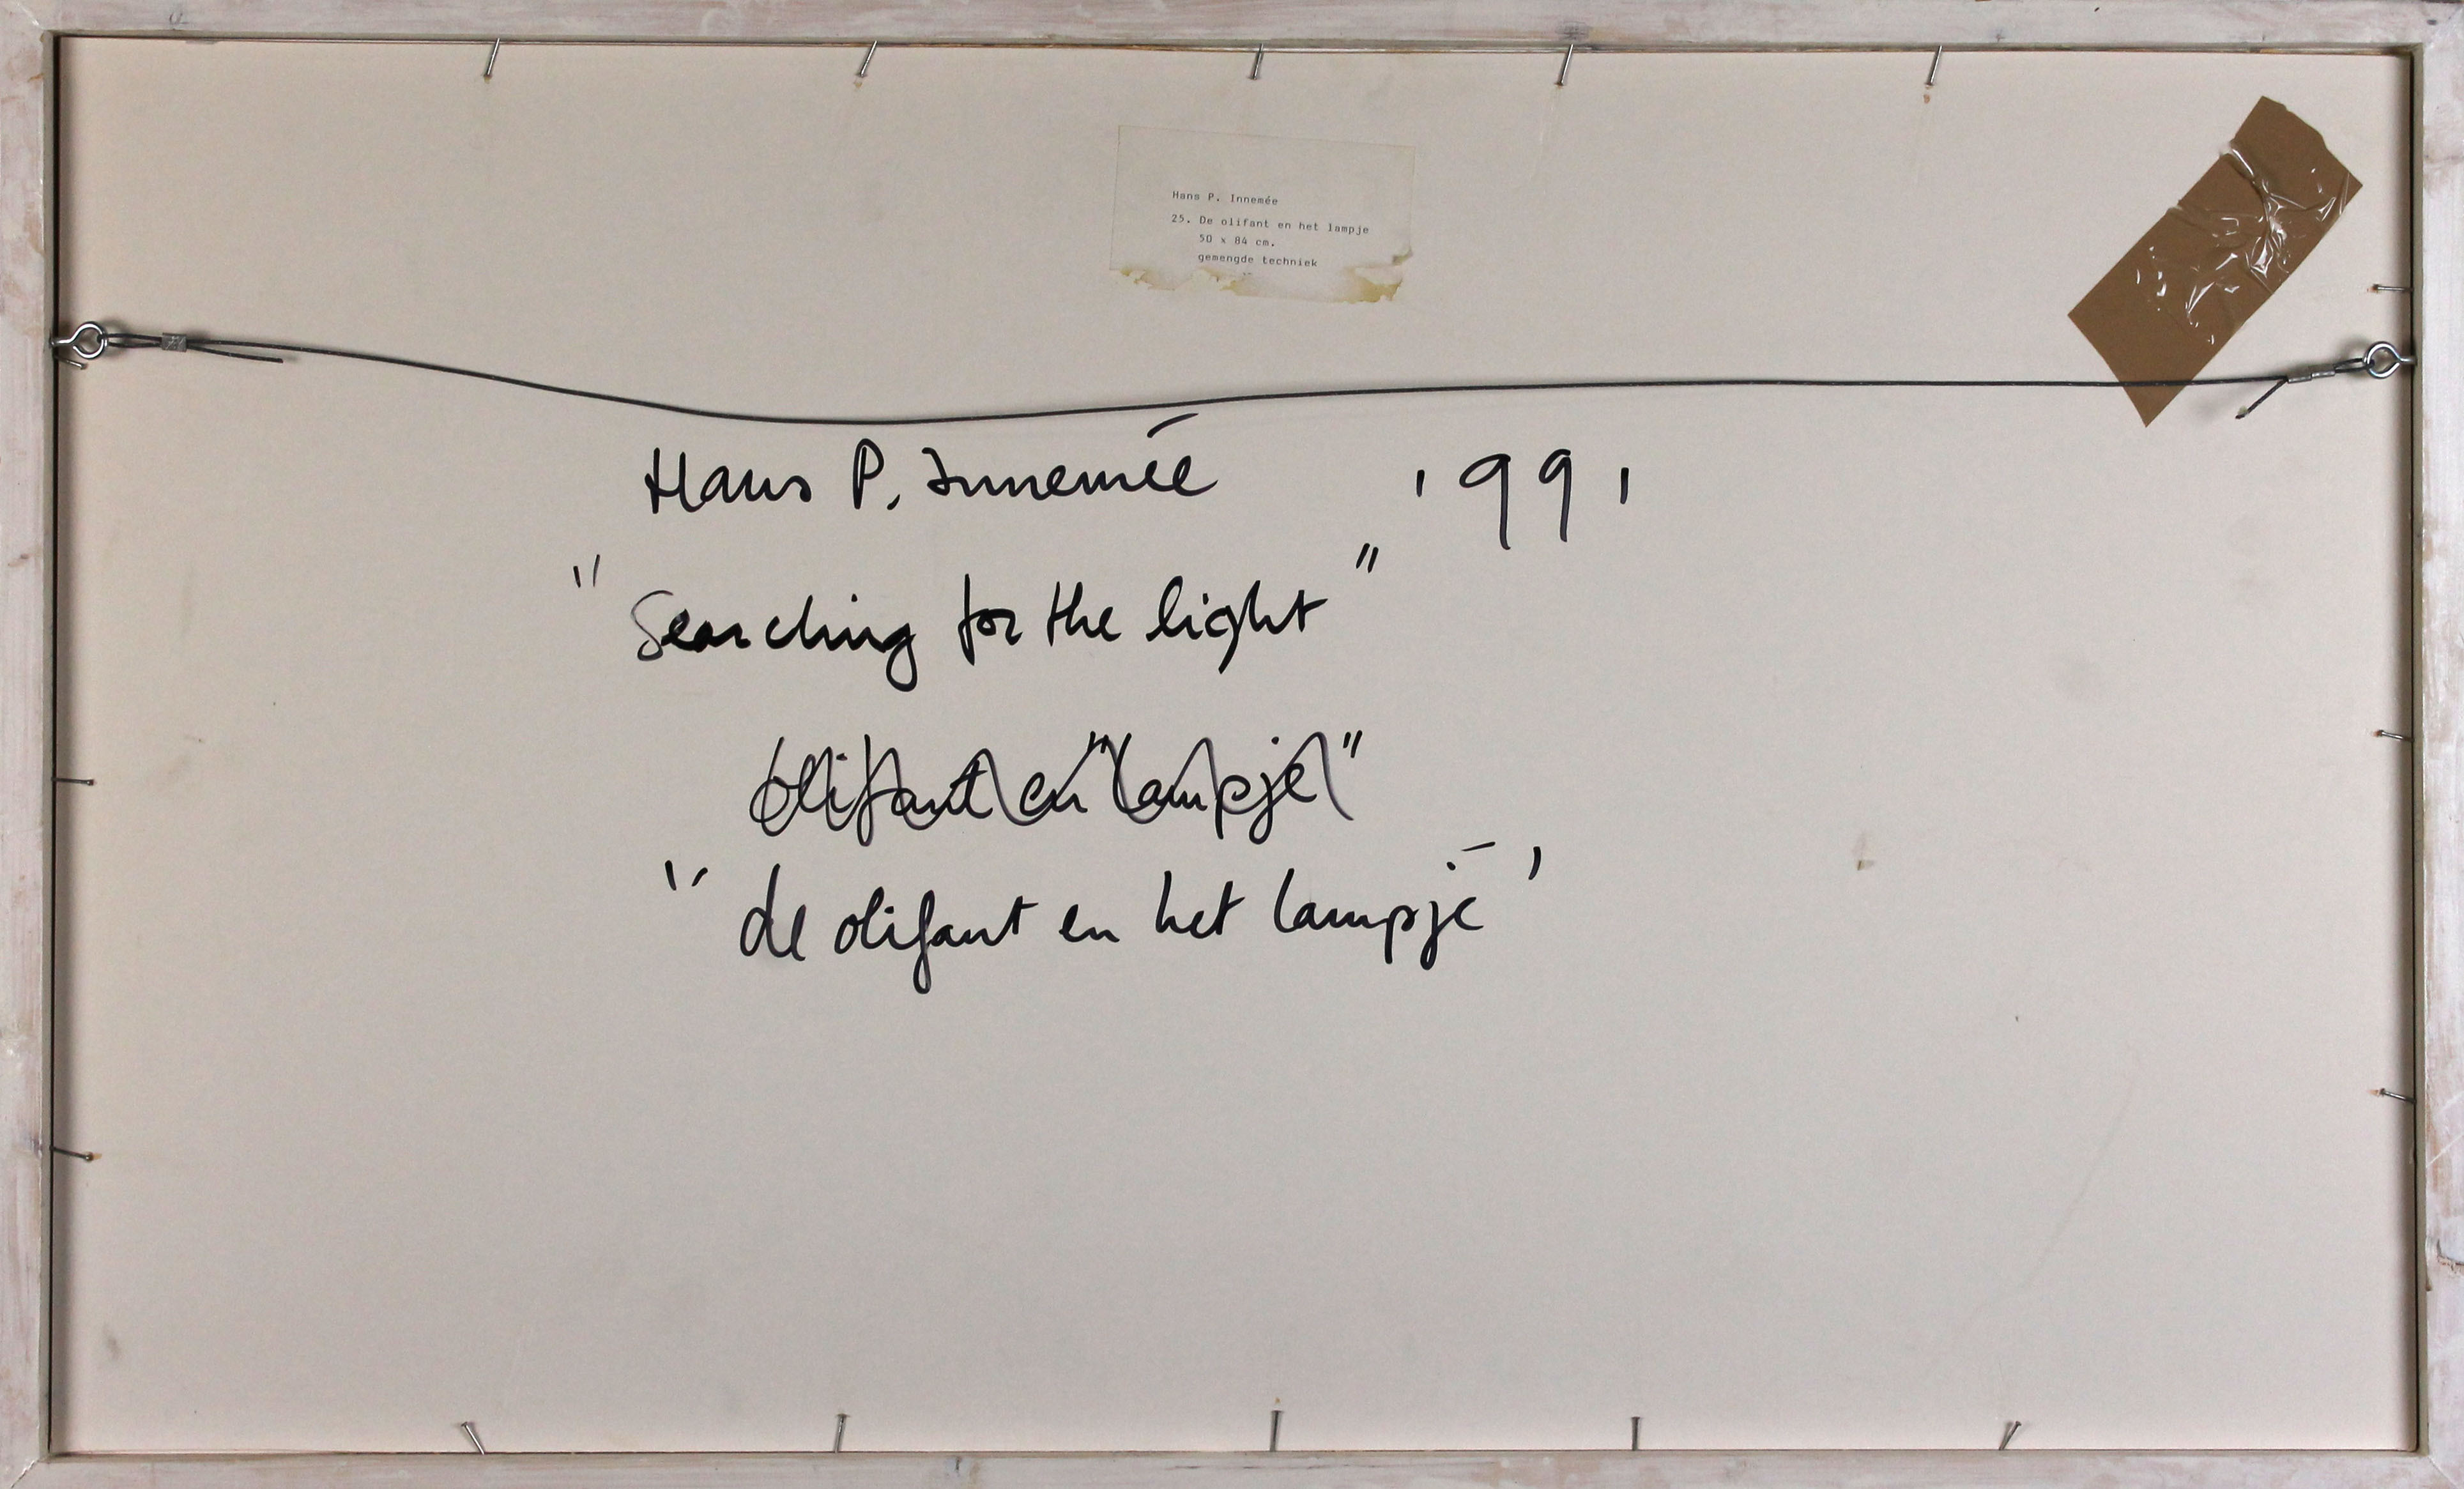 Hans P. Innemée
25. De olifant en het lampje
50 x 84 cm.
gemengde techniek
Hans P. Innemée 1991
"Searching for the light"
olifant en "lampje"
"de olifant en het lampje"